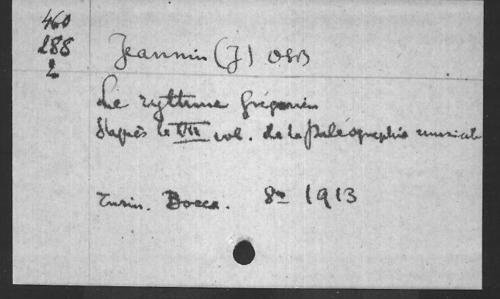 460
288
2
Jeannin (J) OSB
Le rythme Grégorien
d'après le VII vol. de la Paléographie musicale
Turin. Bocca. 8º 1913